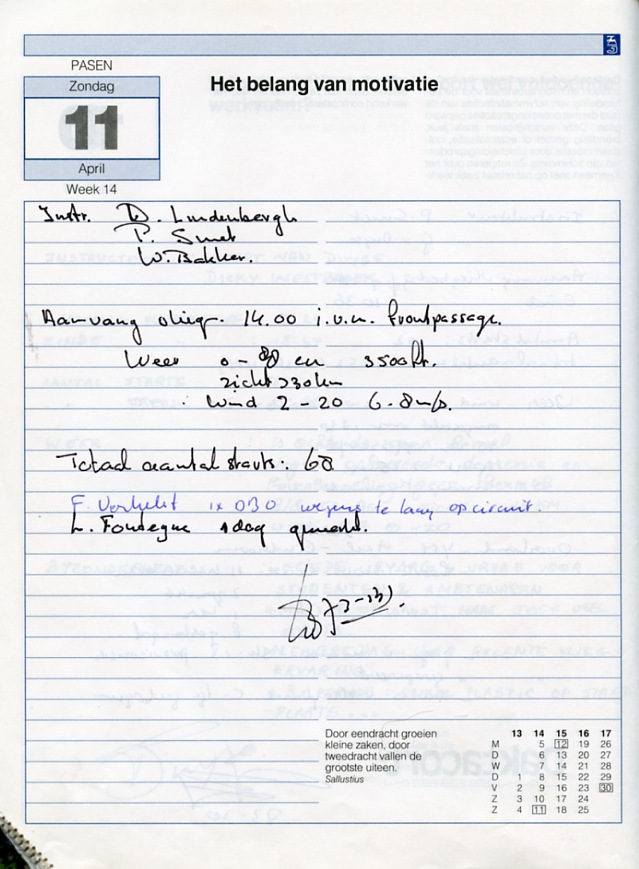 PASEN
Zondag
11
April
Week 14
Het belang van motivatie
Instr. D. Lindenbergh
P. Smet
W. Bakker.
Aanvang vlieg. 14.00 i.v.m. frontpassage.
Weer 0- en 3500ft.
zicht >30km
: Wind 2 - 20 6-8 m/s.
Totaal aantal starts: 68
F. Verhelst 1x DBO wegens te laag op circuit.
L. Fontegne 1 dag gemerkt.
Door eendracht groeien
kleine zaken, door
tweedracht vallen de
grootste uiteen.
Sallustius
13 14 15 16 17
M 5 12 19 26
D 6 13 20 27
W 7 14 21 28
D 1 8 15 22 29
V 2 9 16 23 30
Z 3 10 17 24
Z 4 11 18 25